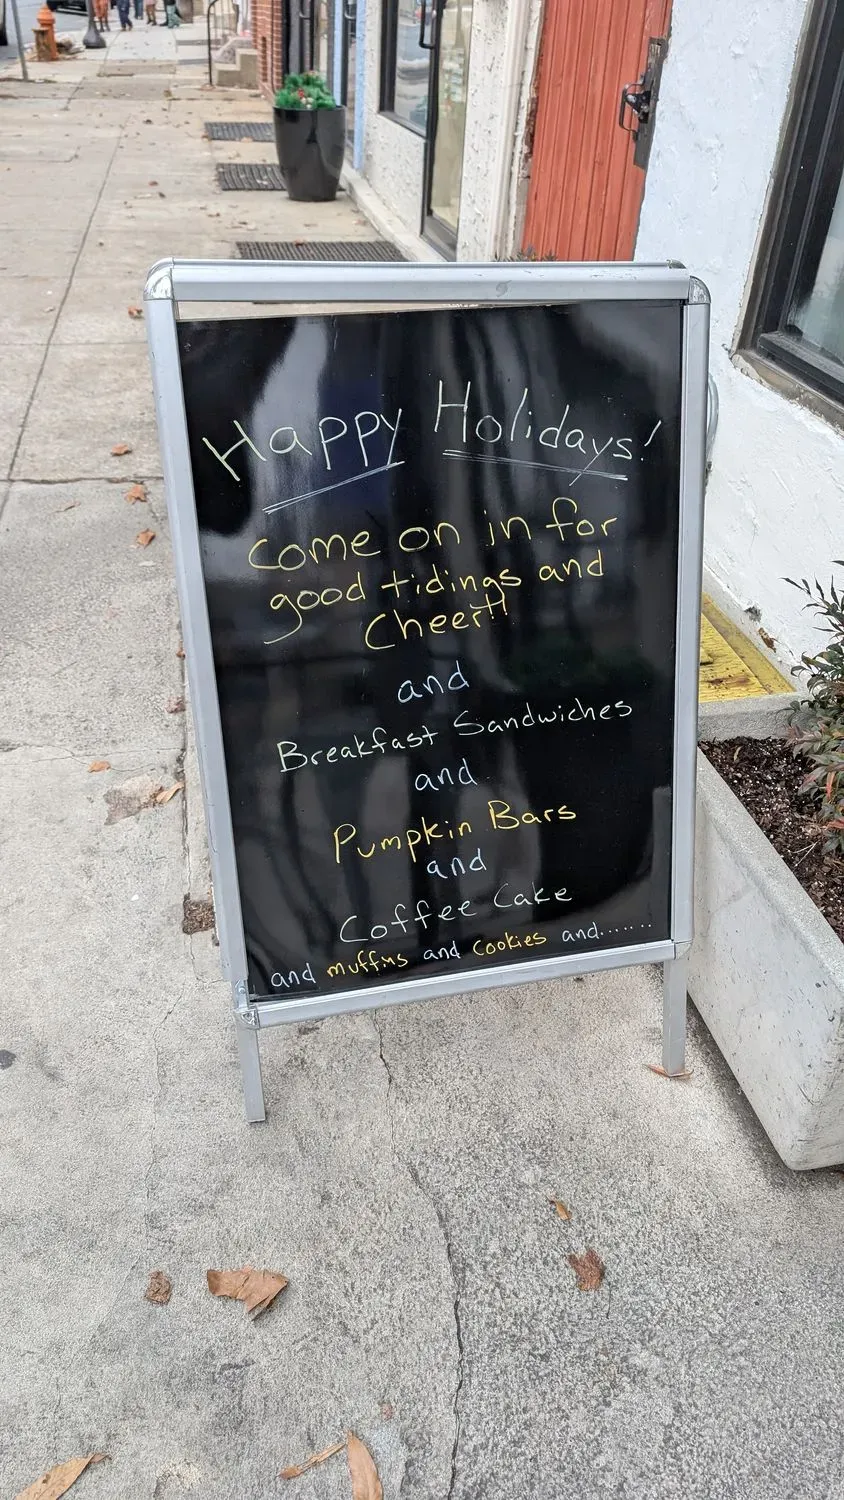 Happy Holidays!
Come on in for
good tidings and
Cheer!!
and
Breakfast Sandwiches
and
Pumpkin Bars
and
Coffee Cake
and muffins and cookies and.......